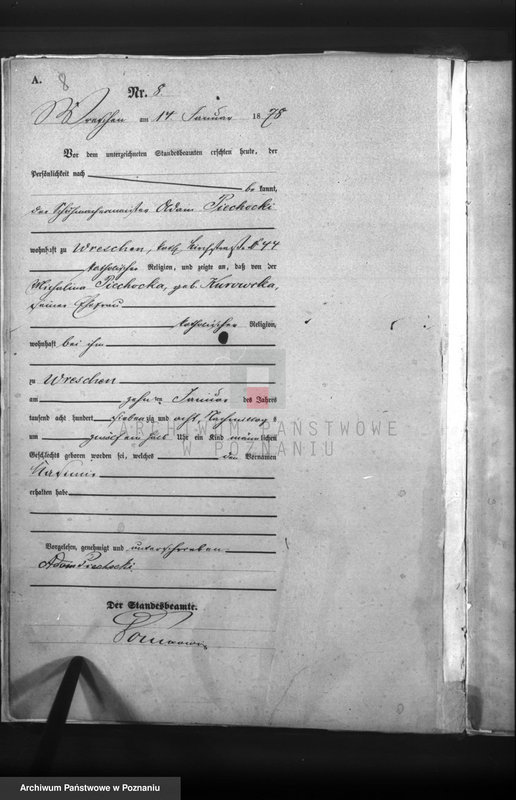 A.
8
Nr. 8
Wreschen am 14 Januar 1878
Vor dem unterzeichneten Standesbeamten erschien heute, der
Persönlichkeit nach
be kannt,
der Schuhmachermeister Adam Piechocki
wohnhaft zu Wreschen, kath. Kirchstraße № 44
katholischer Religion, und zeigte an, daß von der
Michalina Piechocka, geb. Kurowska,
seiner Ehefrau
katholischer Religion,
wohnhaft bei ihm
zu Wreschen
am zehnten Januar des Jahres
tausend acht hundert sieben zig und acht, Nachmittags
um ein halb Uhr ein Kind männlichen
Geschlechts geboren worden sei, welches den Vornamen
erhalten habe
Vorgelesen, genehmigt und unterschrieben
Adam Piechocki
Der Standesbeamte.
ARCHIWUM PAŃSTWOWE
W POZNANIU
Archiwum Państwowe w Poznaniu